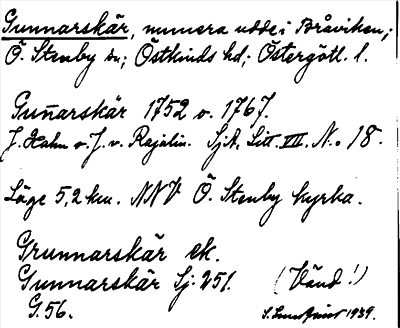 Gunnarskär, numera udde i Bråviken;
Ö. Stenby sn; Östkinds hd; Östergötl. l.
Gun̄arskär 1752 o. 1767.
J. Hahn o. J. v. Rajalin. SjA, Litt. VII. No 18.
Läge 5,2 km. NNV Ö. Stenby kyrka.
Grunnarskär ek.
Gunnarskär Sj: 251. (Vänd!)
G. 56. 1939.